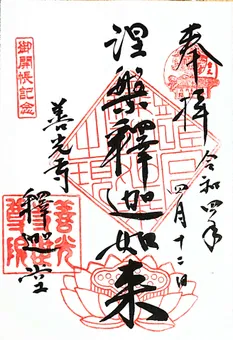 奉拝
令和四年
四月十二日
涅槃釋迦如来
御開帳記念
善光寺
釋迦堂